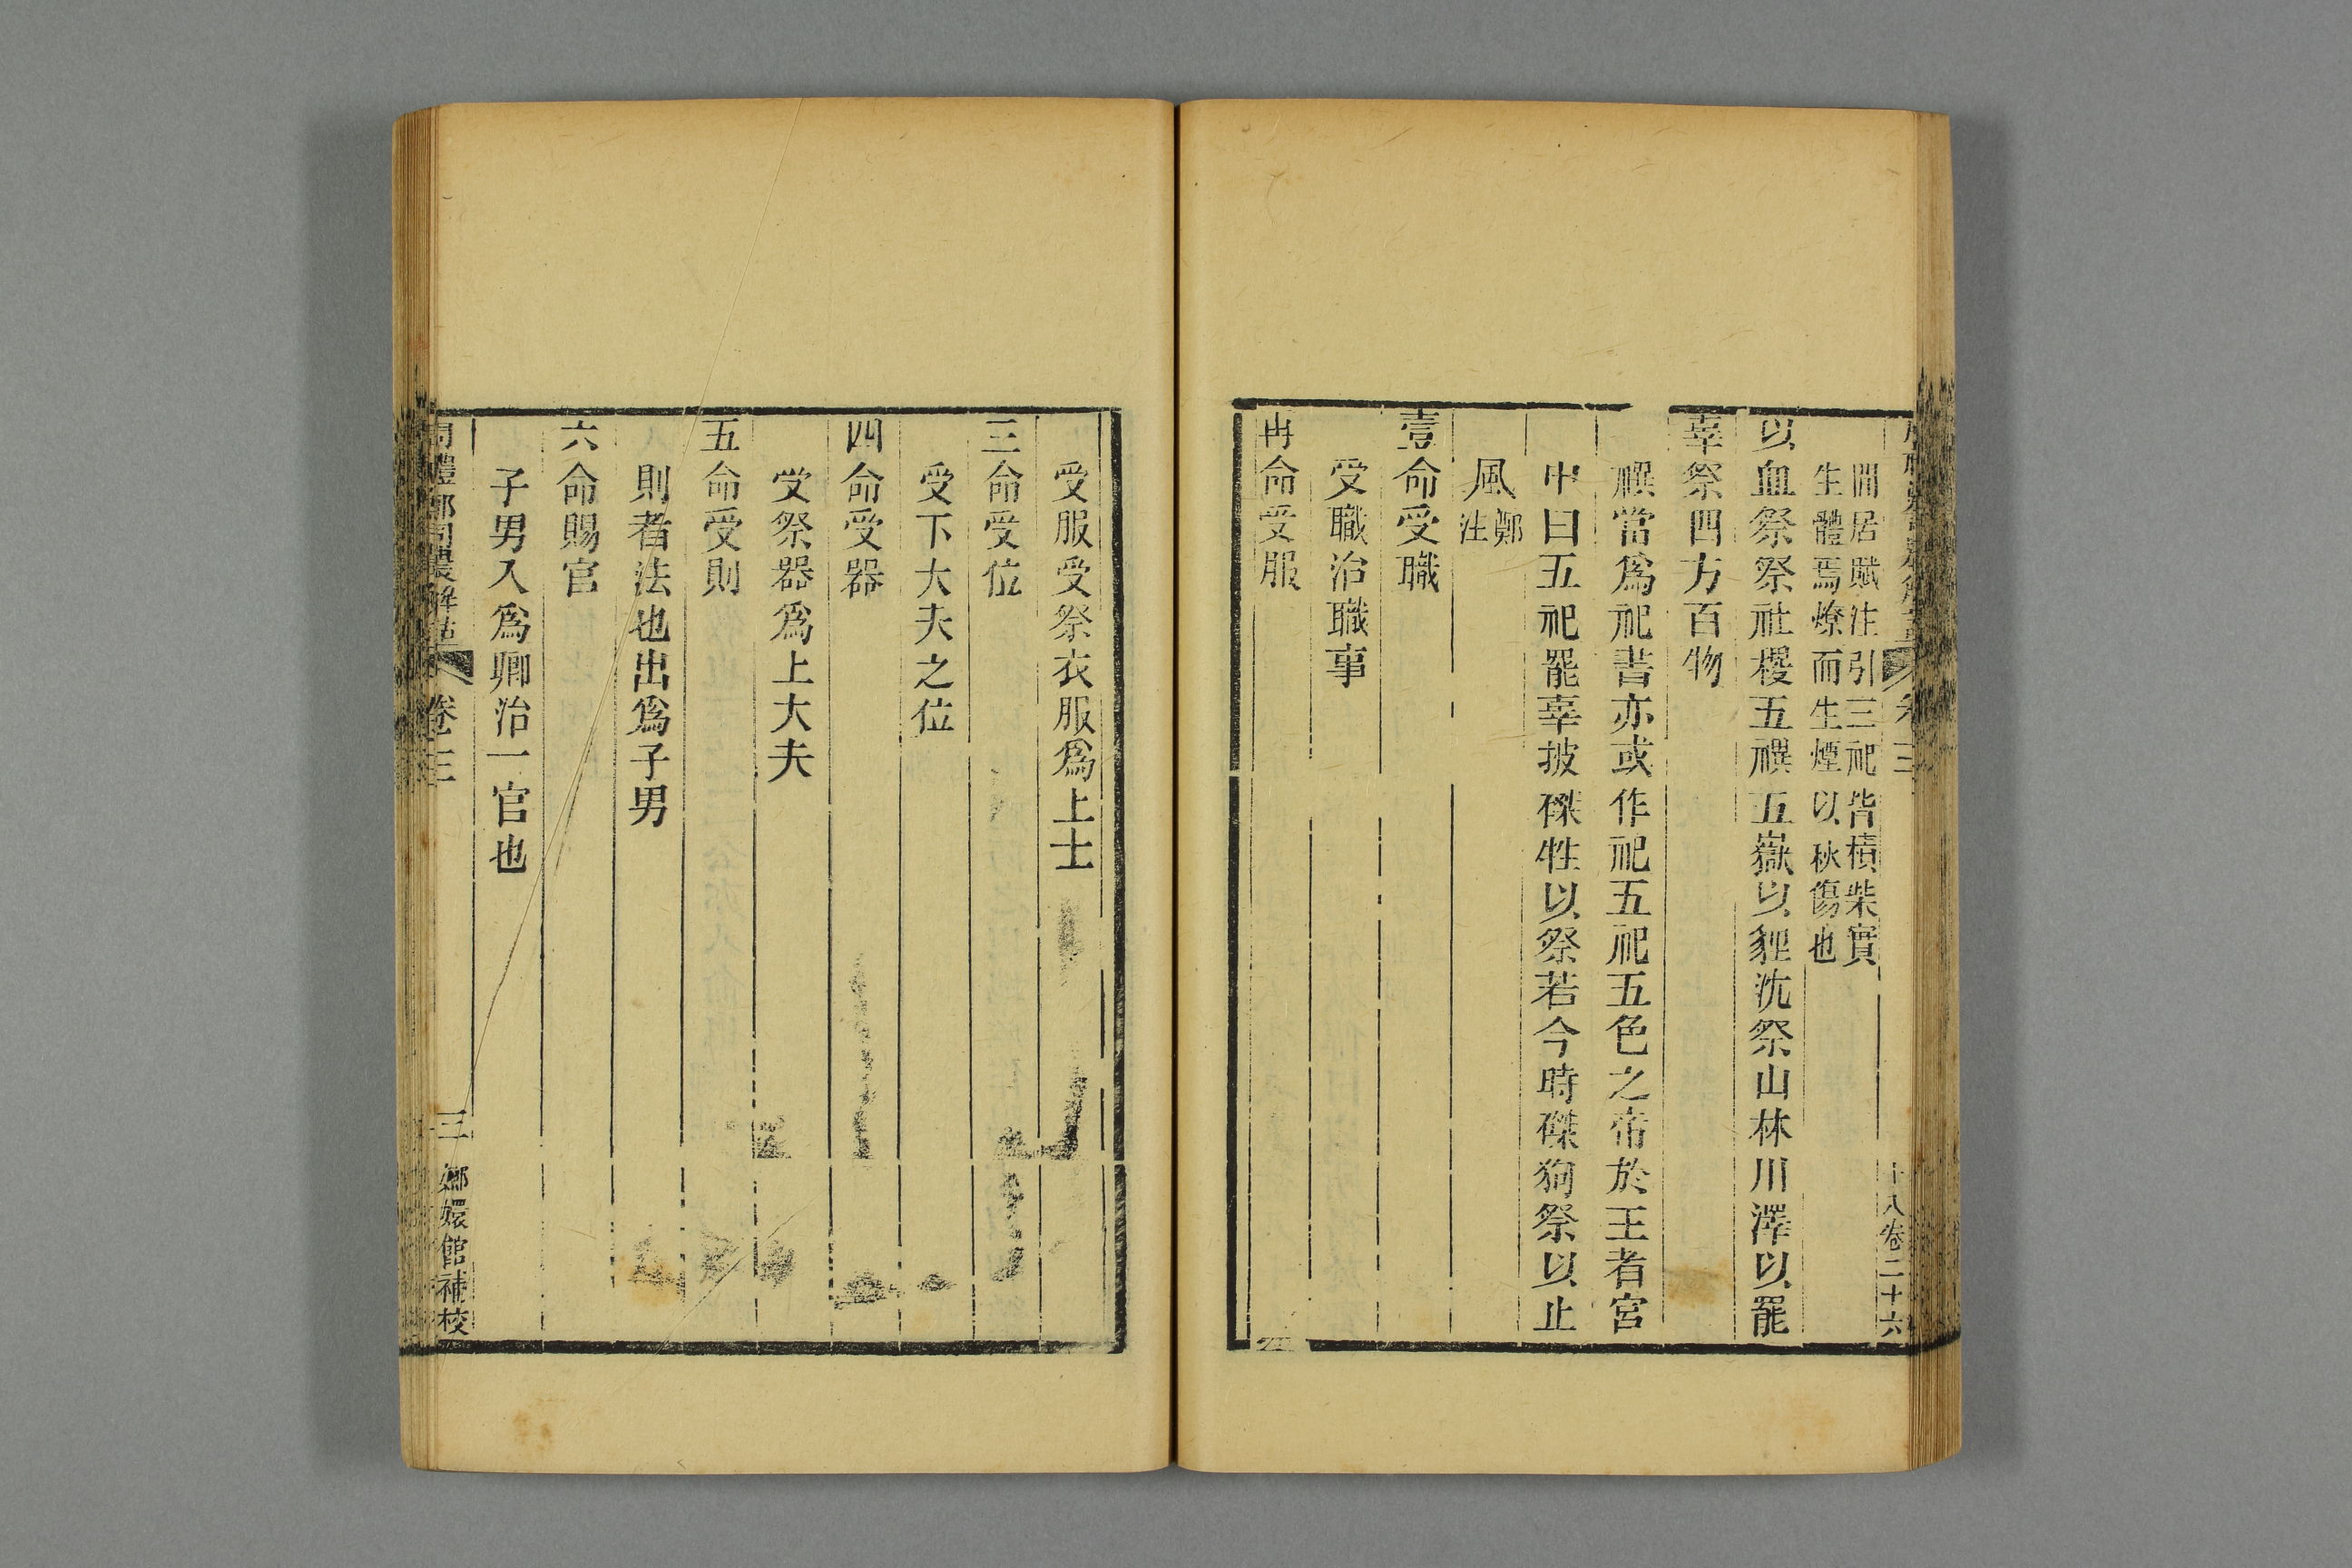 閒居賦注引三祀皆積柴實
生體焉燎而生煙以秋傷也
以血祭祭社稷五䄟五嶽以貍沈祭山林川澤以罷
辜祭四方百物
䄟當爲祀書亦或作祀五祀五色之帝於王者宮
中曰五祀罷辜披磔牲以祭若今時磔狗祭以止
風鄭注
壹命受職
受職治職事
冉命受服
受服受祭衣服爲上士
三命受位
受下大夫之位
四命受器
受祭器爲上大夫
五命受則
則者法也出爲子男
六命賜官
子男入爲卿治一官也
周禮鄭司農解詁
卷三
三
嫏嬛館補校